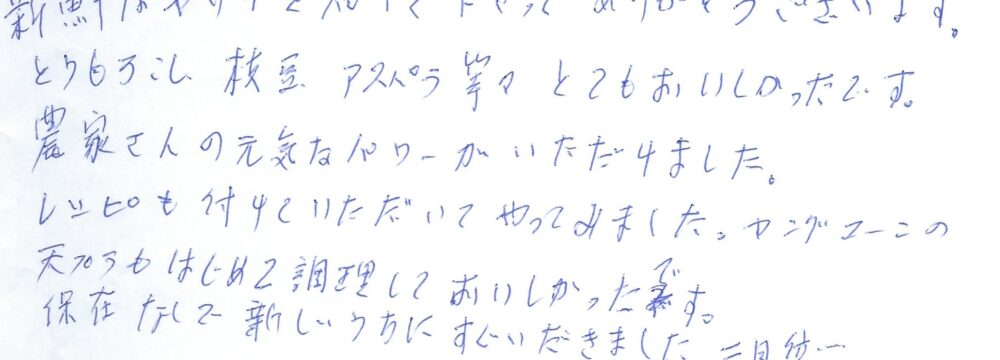 新鮮なヤサイを
とうもろこし、枝豆、アスパラ等々とてもおいしかったです。
農家さんの元気なパワーがいただけました。
レシピも付けていただいてやってみました。ヤングコーンの
天プラもはじめて調理しておいしかったです。
保存なしで新しいうちにすぐいただきました